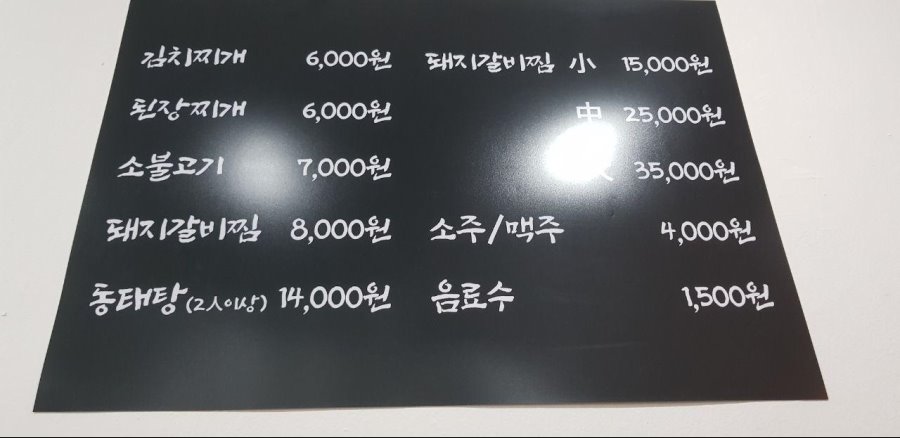 김치찌개 6,000원
된장찌개 6,000원
소불고기 7,000원
돼지갈비찜 8,000원
동태탕(2人이상) 14,000원
돼지갈비찜 小 15,000원
中 25,000원
35,000원
소주/맥주 4,000원
음료수 1,500원